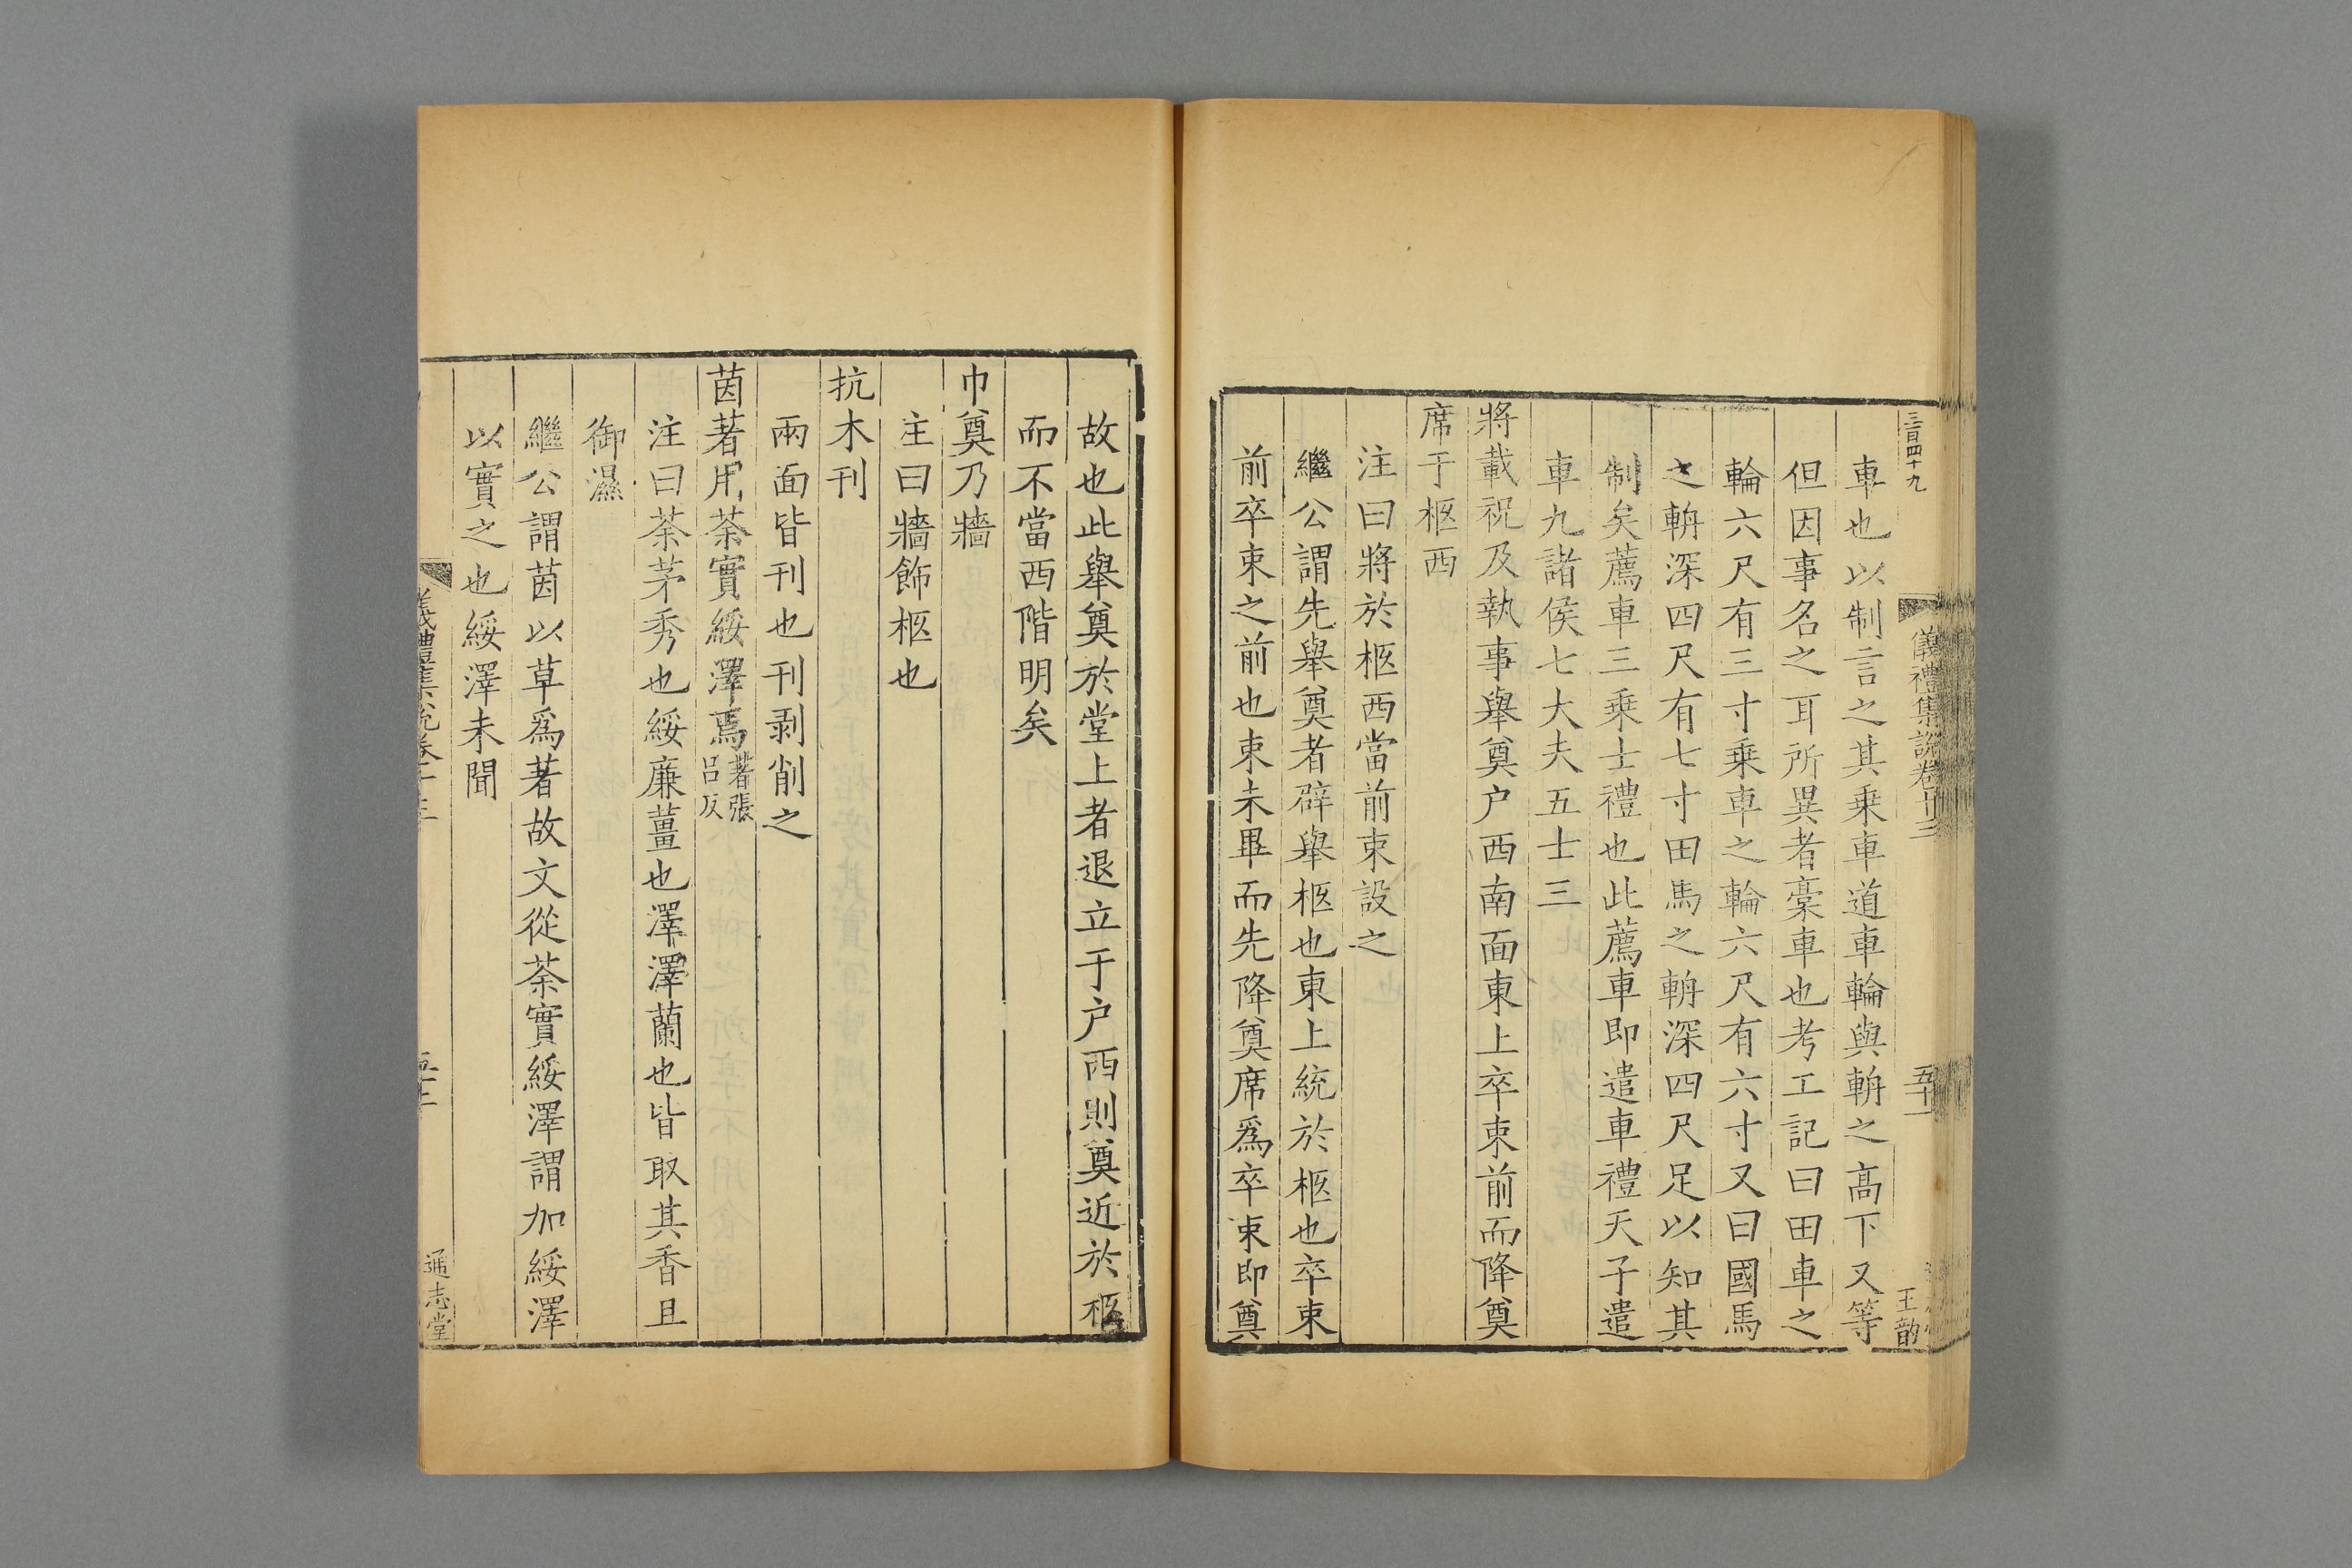 三百四十九
儀禮集說卷十三
五十一
王韵
車也以制言之其乗車道車輪與輈之髙下又等
但因事名之耳所異者槀車也考工記曰田車之
輪六尺有三寸乗車之輪六尺有六寸又曰國馬
之輈深四尺有七寸田馬之輈深四尺足以知其
制矣薦車三乗士禮也此薦車即遣車禮天子遣
車九諸侯七大夫五士三
將載祝及執事舉奠户西南面東上卒束前而降奠
席于柩西
注曰將於柩西當前束設之
繼公謂先舉奠者辟舉柩也東上統於柩也卒束
前卒束之前也束未畢而先降奠席爲卒束即奠
故也此舉奠於堂上者退立于户西則奠近於柩
而不當西階明矣
巾奠乃牆
注曰牆飾柩也
抗木刊
兩面皆刊也刊剥削之
茵著用荼實綏澤焉著張吕反
注曰荼茅秀也綏廉薑也澤澤蘭也皆取其香且
御濕
繼公謂茵以草爲著故文從荼實綏澤謂加綏澤
以實之也綏澤未聞
儀禮集說卷十三
通志堂